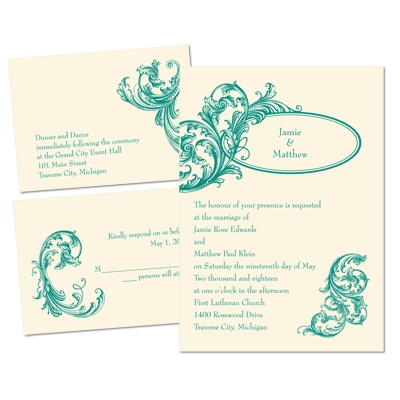 Dinner and Dance
immediately following the ceremony
at the Grand City Event Hall
101 Main Street
Traverse City, Michigan
Jamie
&
Matthew
The honour of your presence is requested
at the marriage of
Jamie Rose Edwards
and
Matthew Paul Klein
on Saturday the nineteenth day of May
Two thousand and eighteen
at one o'clock in the afternoon
First Lutheran Church
1400 Rosewood Drive
Traverse City, Michigan
Kindly respond on or befo
May 1, 20
M
persons will at